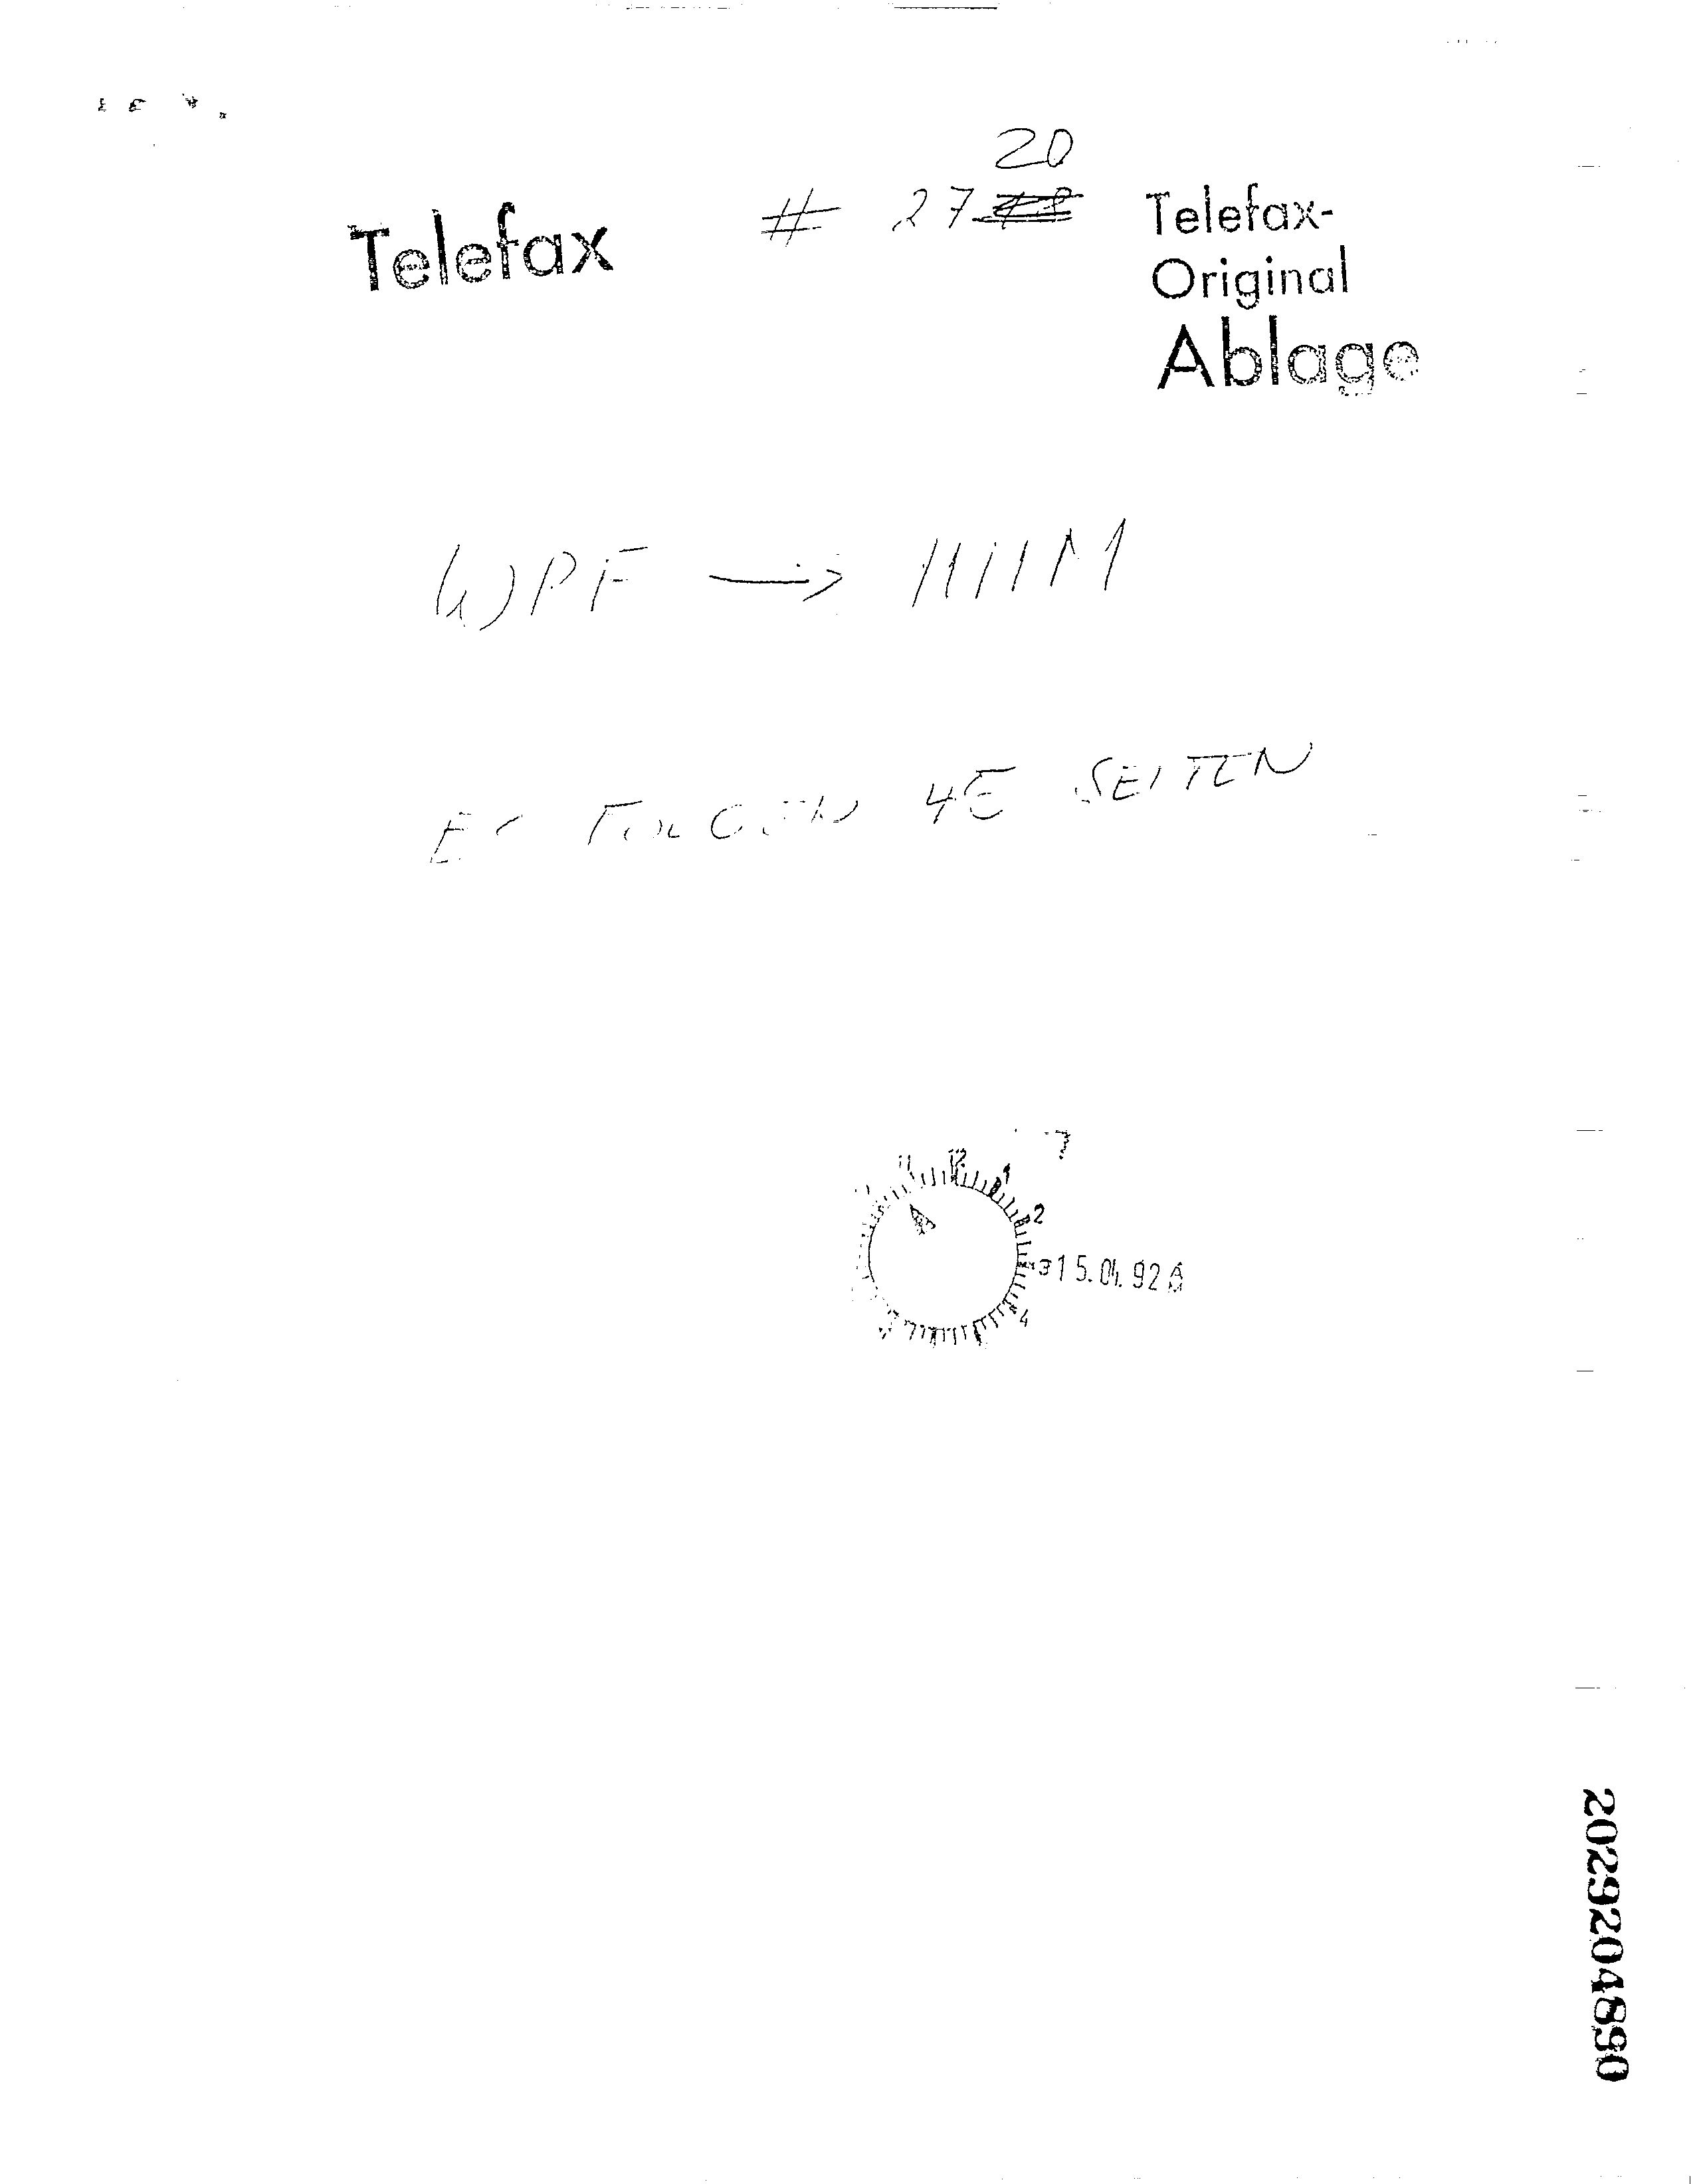 20
Telefax # 27
Telefax-
Original
Ablage
WPF → HHM
ES FOLGEN 45 SEITEN
11 12 1
2
3 15.04.92
4
2029204890